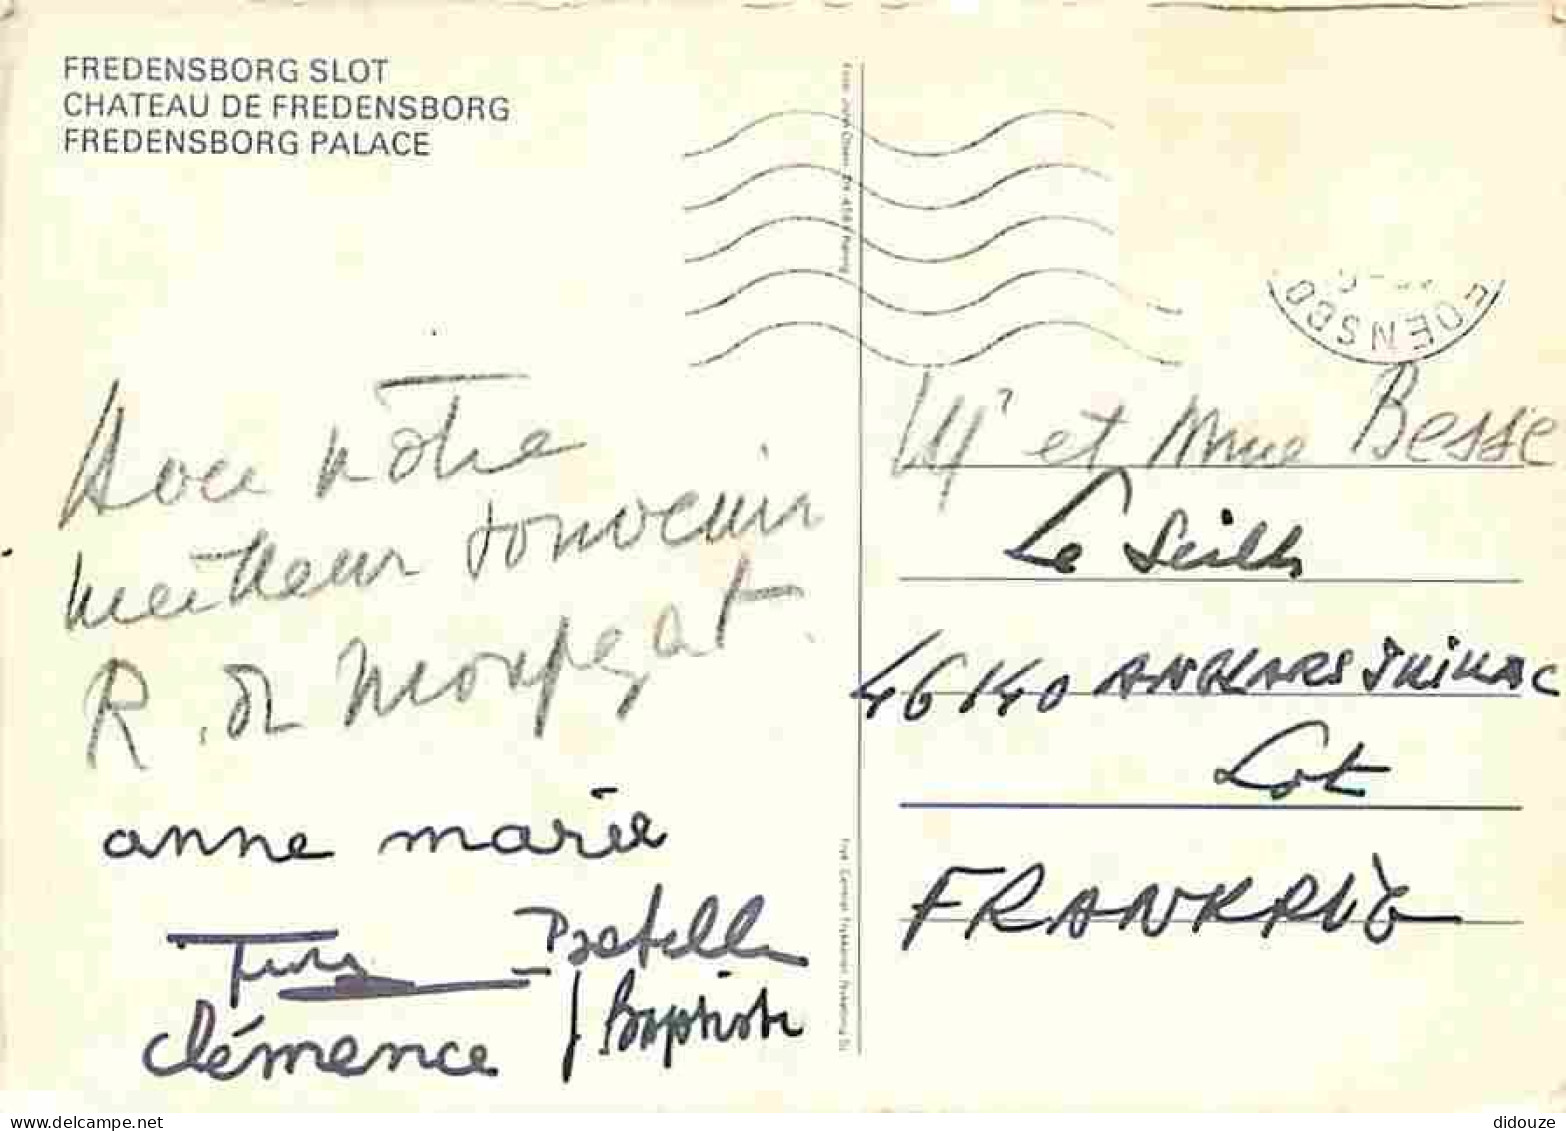 FREDENSBORG SLOT
CHATEAU DE FREDENSBORG
FREDENSBORG PALACE
Avec nôtre
meilleur souvenir
R. de Monpezat.
anne marie
clémence
J Baptiste
DENSBO
Mr et Mme Besse
Le Seilh
46140 ANGLARS JUILLAC
Lot
FRANKRIG
delcampe.net
didouze